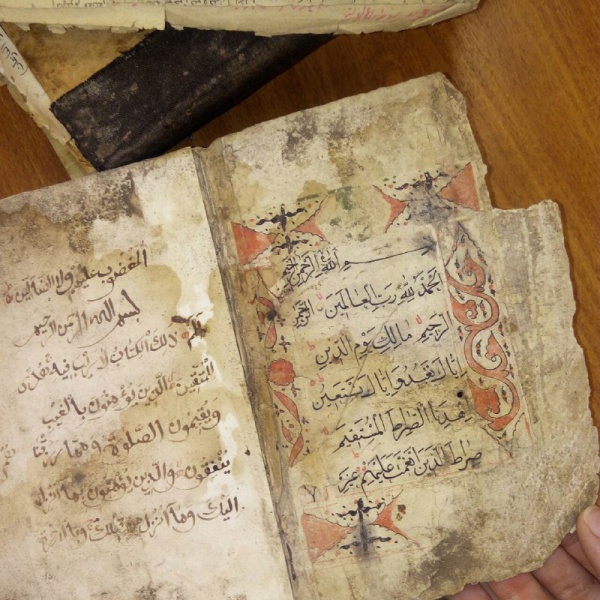 بسم الله الرحمن الرحيم
الحمد لله رب العالمين الرحمن
الرحيم مالك يوم الدين
اياك نعبد واياك نستعين
اهدنا الصراط المستقيم
صراط الذين انعمت عليهم غير
المغضوب عليهم ولا الضالين
بسم الله الرحمن الرحيم
الم ذلك الكتاب لا ريب فيه هدى
للمتقين الذين يؤمنون بالغيب
ويقيمون الصلوة ومما رزقنا
ينفقون والذين يؤمنون بما انزل
اليك وما انزل من قبلك وبالاخرة